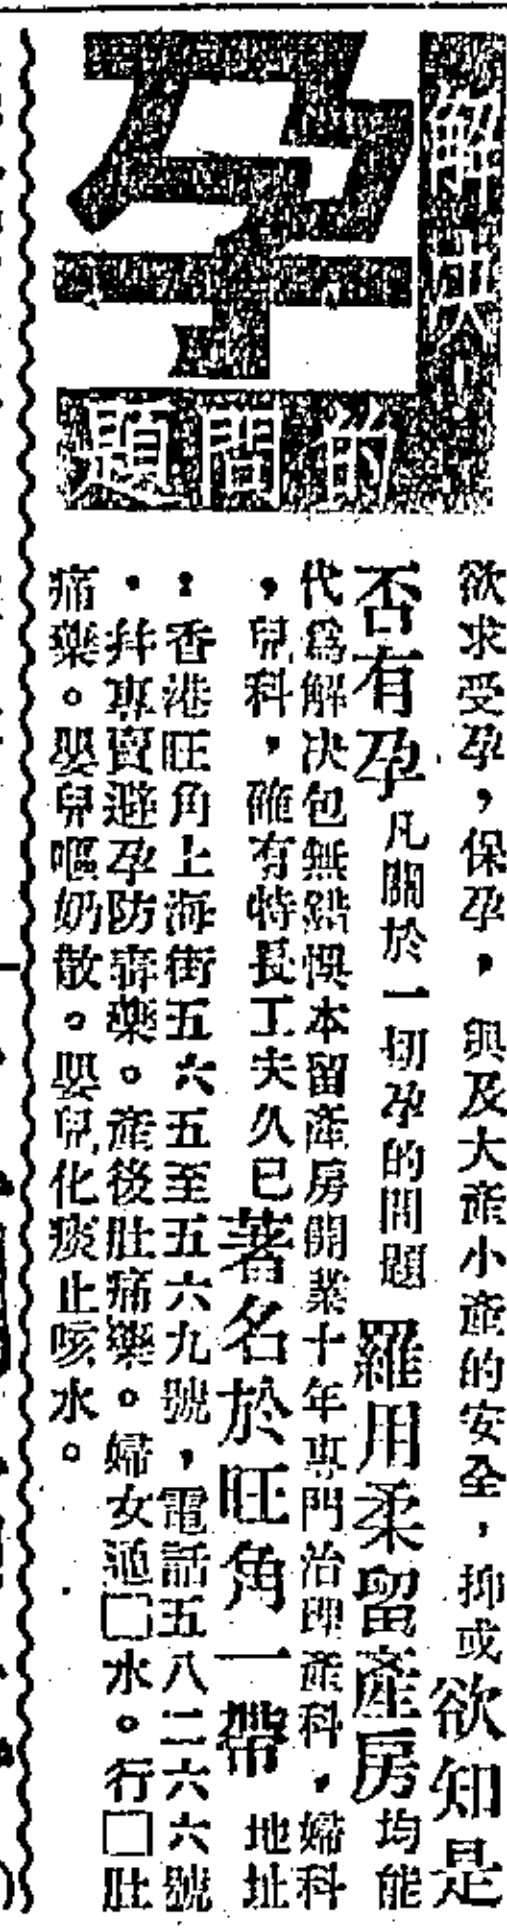 解决！
孕
的問題
欲求受孕，保孕，與及大產小產的安全，抑或欲知是
否有孕凡關於一切孕的問題羅用柔留產房均能
代爲解决包無錯悞本留產房開業十年專門治理產科，婦科
，兒科，確有特長工夫久已著名於旺角一帶 地址
：香港旺角上海街五六五至五六九號，電話五八二六六號
，幷專賣避孕防毒藥。產後肚痛藥。婦女通□水。行□肚
痛藥。嬰兒嘔奶散。嬰兒化痰止咳水。